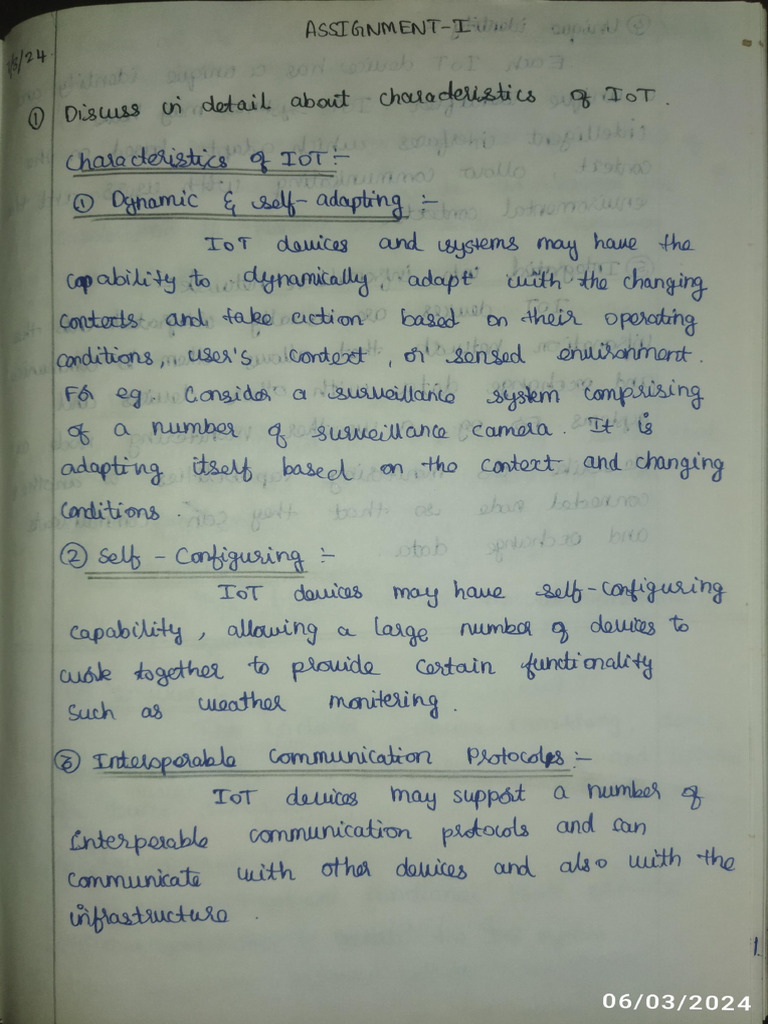 ASSIGNMENT-I
/24
① Discuss in detail about characteristics of IoT.
Characteristics of IoT:-
① Dynamic & self-adapting :-
IoT devices and systems may have the
capability to dynamically adapt with the changing
contexts and take action based on their operating
conditions, user's context, or sensed environment.
For eg. Consider a surveillance system comprising
of a number of surveillance camera. It is
adapting itself based on the context and changing
conditions.
② Self-Configuring :-
IoT devices may have self-configuring
capability, allowing a large number of devices to
work together to provide certain functionality
such as weather monitering.
③ Interoperable Communication Protocols:-
IoT devices may support a number of
Interperable communication protocols and can
communicate with other devices and also with the
infrastructure.
1.
06/03/2024